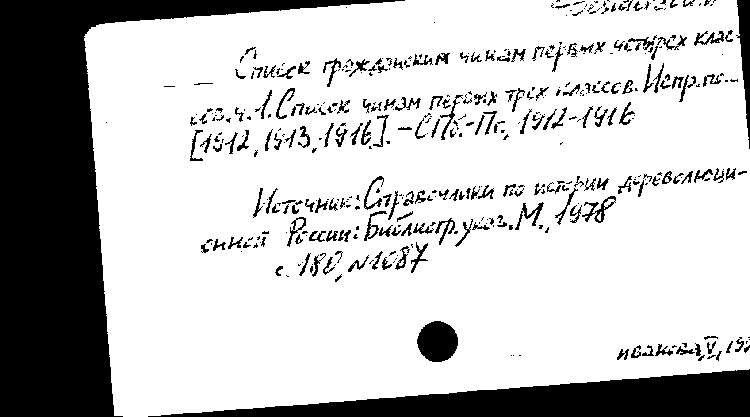 Desiderata
Список гражданским чинам первых четырех клас-
сов. ч.1. Список чинам первых трех классов. Испр. по...
[1912, 1913, 1916]. – СПб.-Пг., 1912-1916
Источник: Справочники по истории дореволюци-
онной России: Библиогр. указ. М., 1978
с. 180, №1087
иванова, V, 19